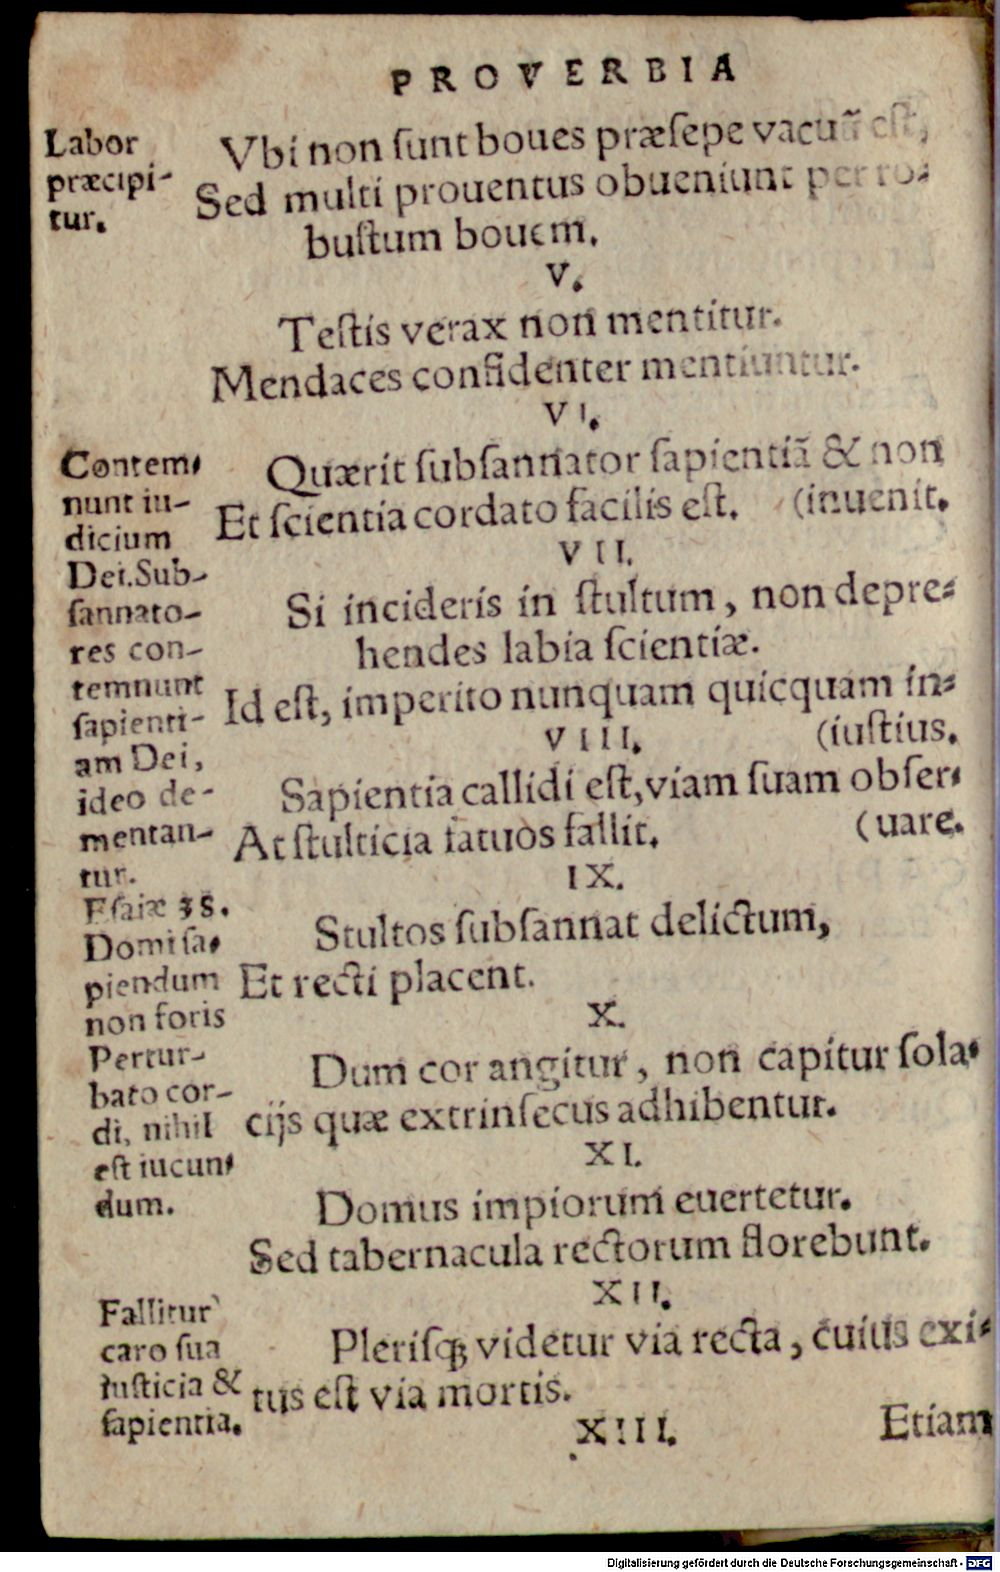 PROVERBIA
Labor
præcipi-
tur.
Vbi non ſunt boues præſepe vacuũ eſt,
Sed multi prouentus obueniunt per ro-
buſtum bouem.
V.
Teſtis verax non mentitur.
Mendaces confidenter mentiuntur.
VI.
Contem-
nunt iu-
dicium
Dei. Sub-
ſannato-
res con-
temnunt
ſapienti-
am Dei,
ideo de-
mentan-
tur.
Eſaiæ 38.
Domi ſa-
piendum
non foris
Pertur-
bato cor-
di, nihil
eſt iucun-
dum.
Quærit ſubſannator ſapientiã & non
Et ſcientia cordato facilis eſt. (inuenit.
VII.
Si incideris in ſtultum, non depre-
hendes labia ſcientiæ.
Id eſt, imperito nunquam quicquam in-
VIII. (iuſtius.
Sapientia callidi eſt, viam ſuam obſer-
At ſtulticia fatuos fallit. (uare.
IX.
Stultos ſubſannat delictum,
Et recti placent.
X.
Dum cor angitur, non capitur ſola-
cijs quæ extrinſecus adhibentur.
XI.
Domus impiorum euertetur.
Sed tabernacula rectorum florebunt.
XII.
Fallitur
caro ſua
iuſticia &
ſapientia.
Pleriſq́; videtur via recta, cuius exi-
tus eſt via mortis.
XIII. Etiam
Digitalisierung gefördert durch die Deutsche Forschungsgemeinschaft - DFG